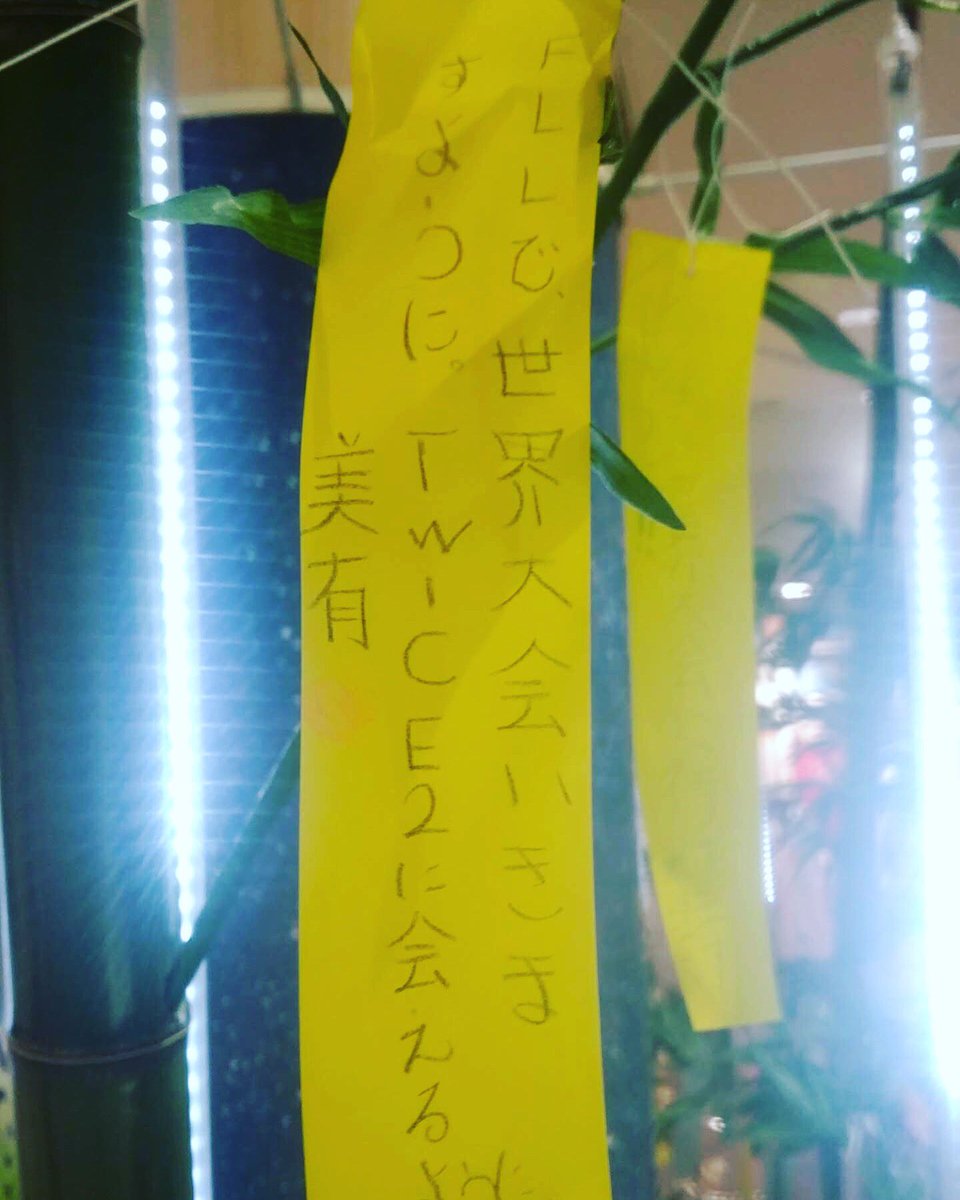 FLLで、世界大会いきま
すように。TWICE2に会える
美有